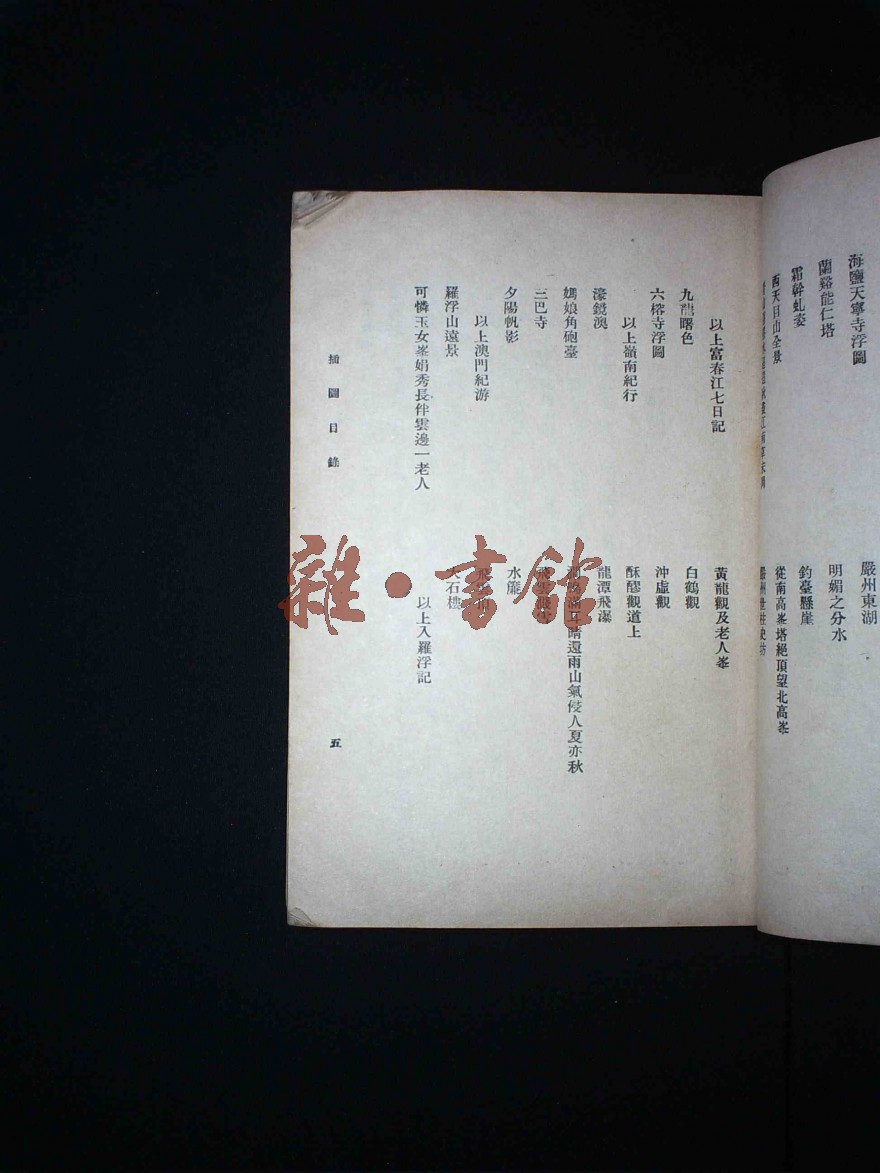 海鹽天寧寺浮圖
蘭谿能仁塔
霜幹虬姿
西天目山全景
嚴州東湖
明媚之分水
釣臺懸崖
從南高峯塔絕頂望北高峯
以上富春江七日記
九龍曙色
六榕寺浮圖
以上嶺南紀行
濠鏡澳
媽娘角砲臺
三巴寺
夕陽帆影
以上澳門紀游
羅浮山遠景
可憐玉女峯娟秀長伴雲邊一老人
黃龍觀及老人峯
白鶴觀
沖虛觀
酥醪觀道上
龍潭飛瀑
滿耳晴還雨山氣侵人夏亦秋
水簾
大石樓
以上入羅浮記
插圖目錄
五
雜·書館